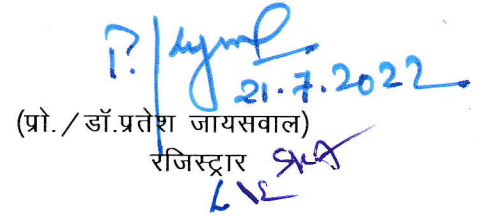 21.7.2022
(प्रो./डॉ.प्रतेश जायसवाल)
रजिस्ट्रार